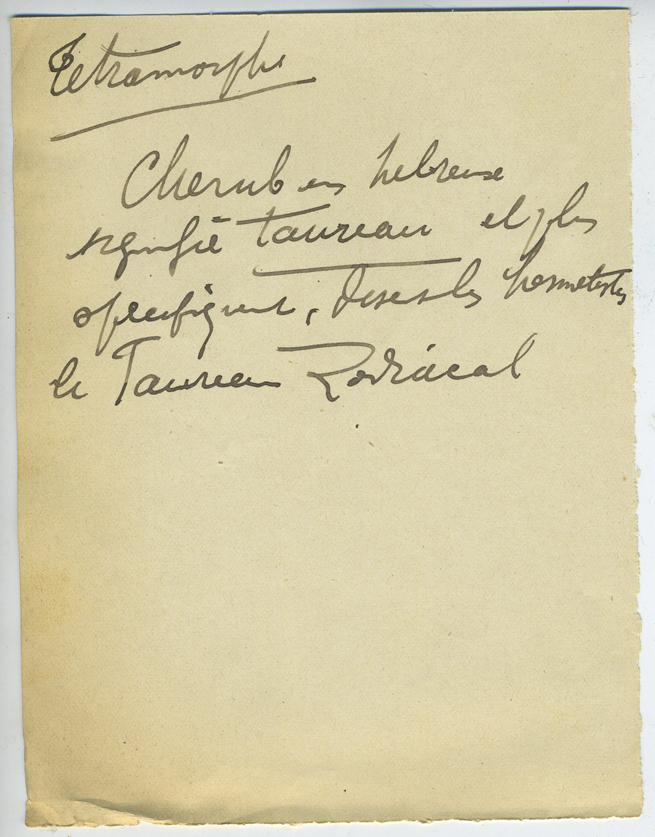 Tetramorphe
Cherub en hebreue
signifie taureau et plus
, disent les hermetistes
le Taureau Zodiacal